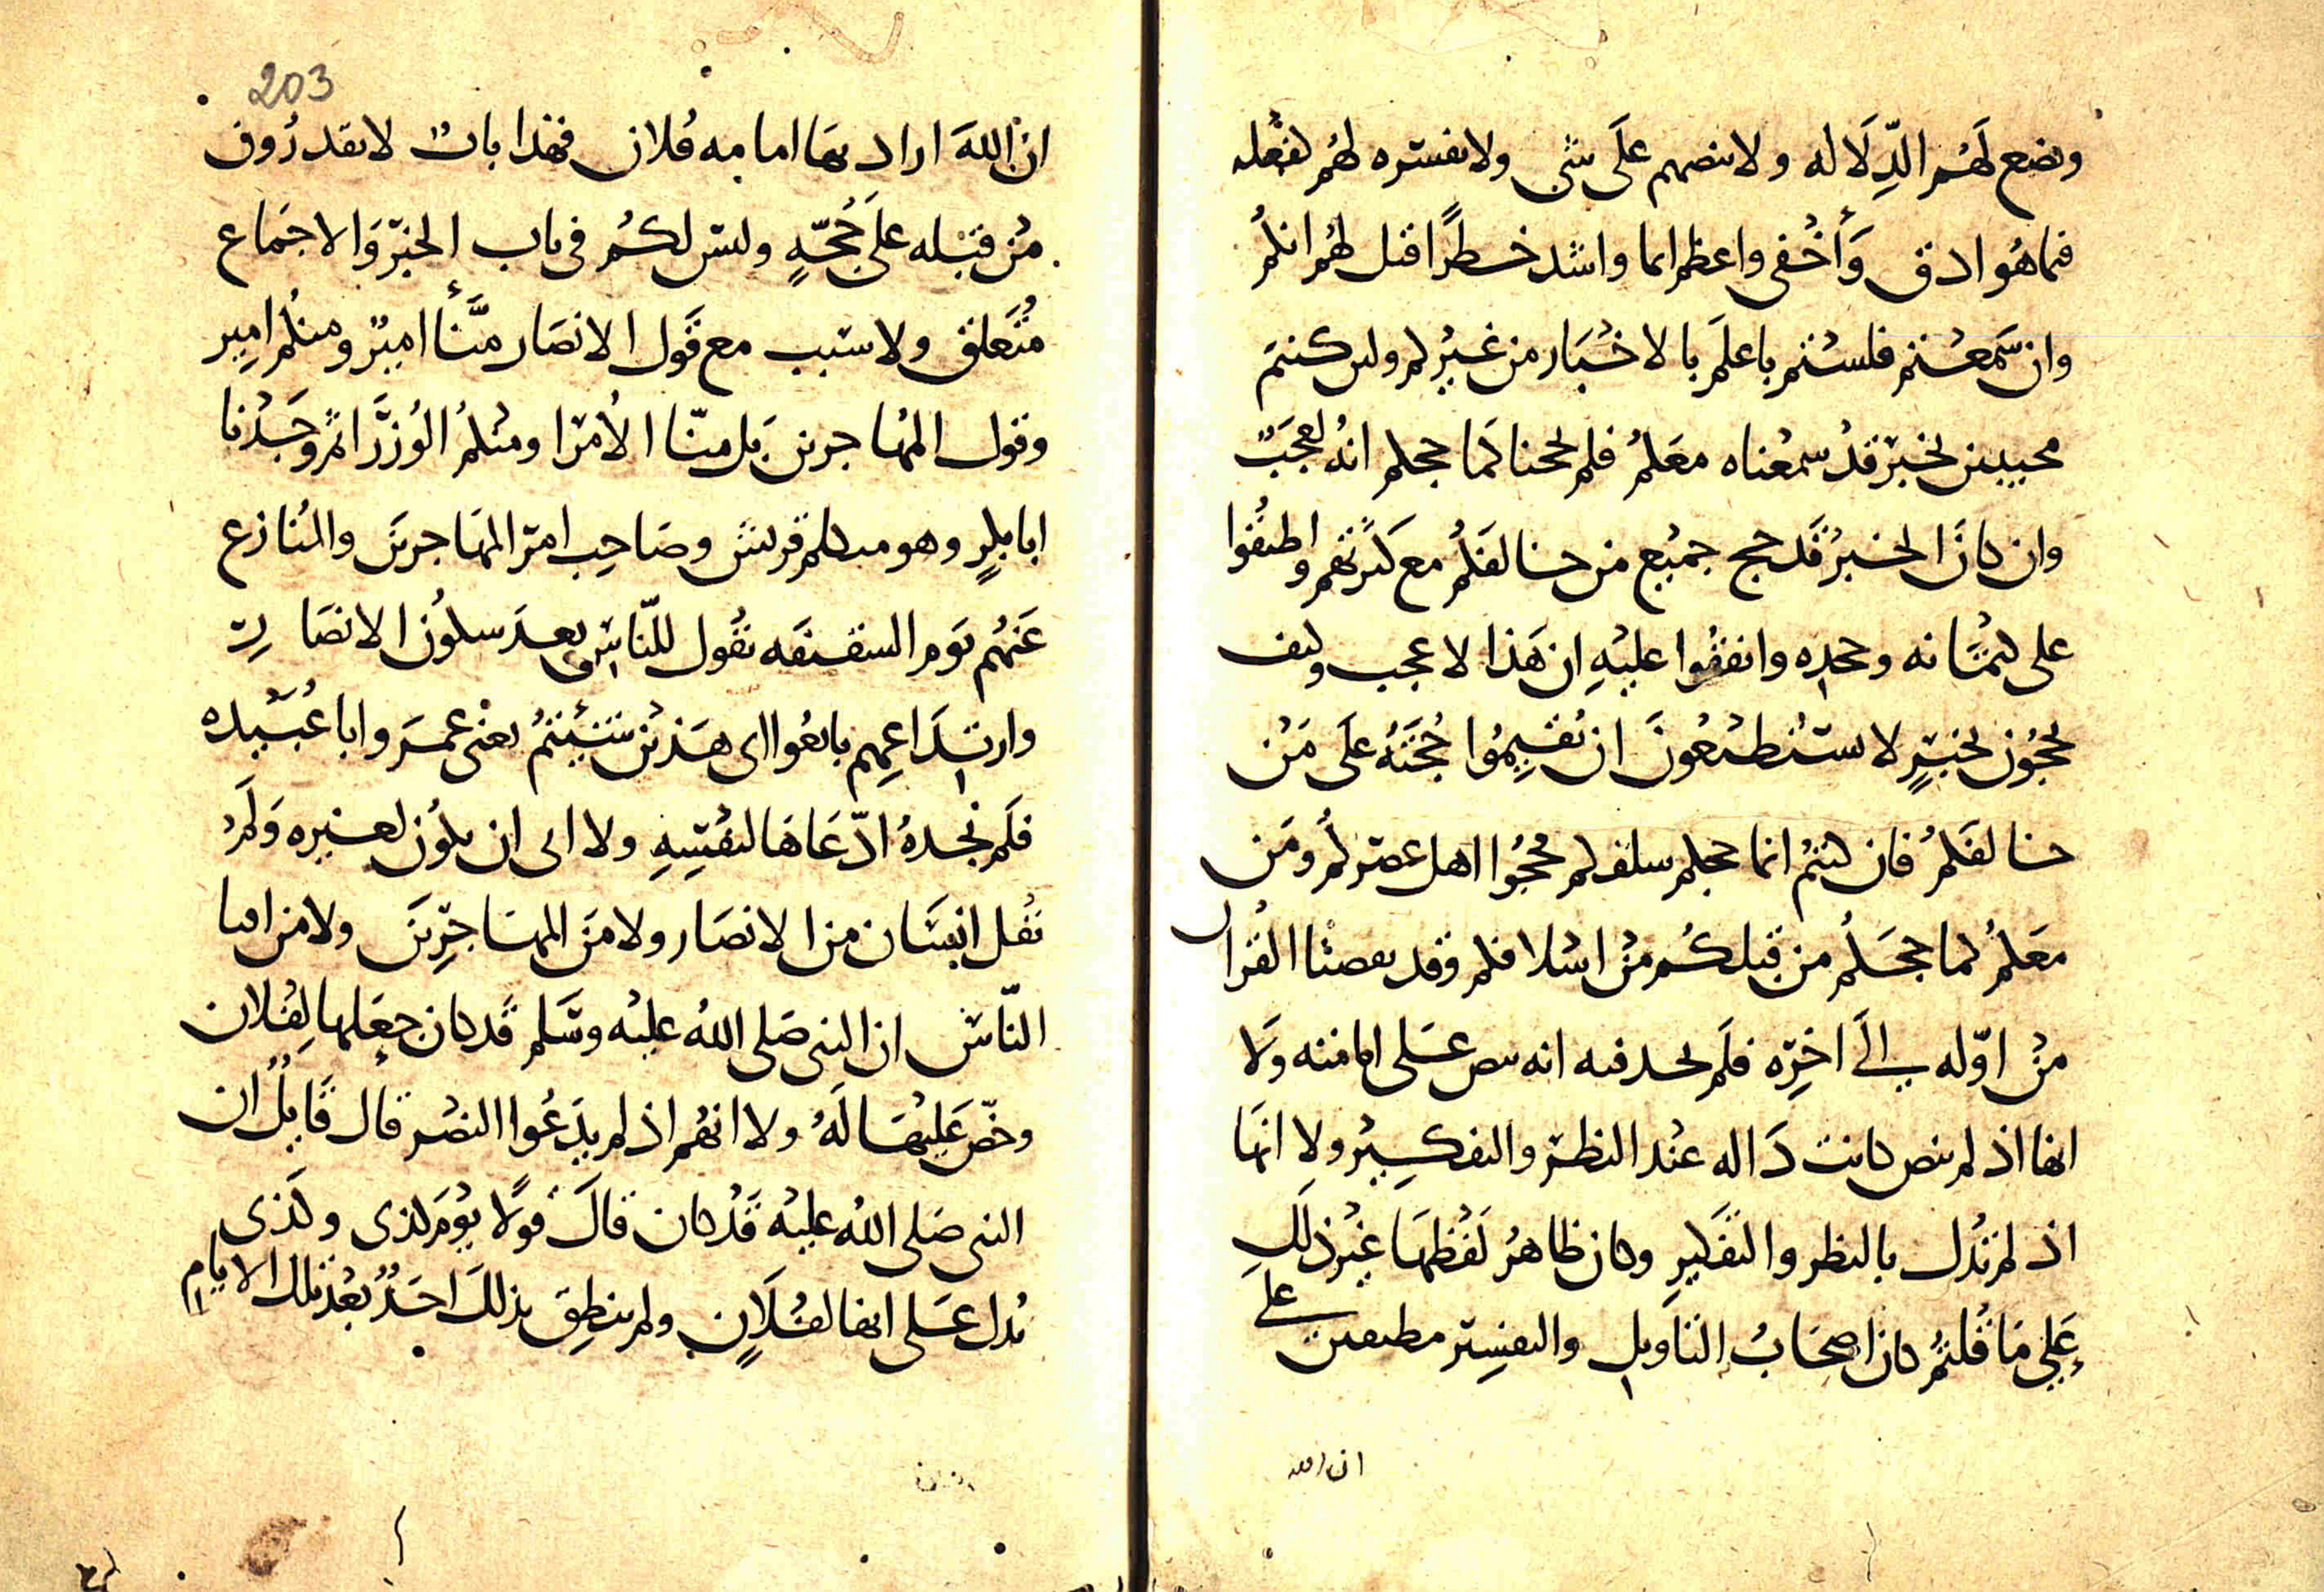 ويضع لهم الدلاله ولا ينصهم على شي ولا يفسره لهم لفعله
فما هو ادق وأخفى واعظم اثما واشد خطرا قيل لهم انكم
وان سمعتم فلستم باعلم بالاخبار من غيركم ولين كنتم
محجوجين بخبر قد سمعناه معكم فلم يححنا كما حجكم انه لعجب
وان كان الخبر قد حج جميع من خالفكم مع كثرتهم واطبقوا
على كتمانه وجحده واتفقوا عليه ان هذا لا عجب وكيف
تحجون بخبر لا تستطيعون ان تقيموا حجته على من
خالفكم فان كنتم انما حجكم سلفكم فحجوا اهل عصركم ومن
معكم كما حجكم من قبلكم من اسلافكم وقد تقصينا القران
من اوله الى اخره فلم نجد فيه ايه تنص على امامته ولا
انها اذ لم تنص كانت داله عند النظر والتفكير ولا انها
اذ لم تدل بالنظر والتفكير وكان ظاهر لفظها غير ذلك
على ما قلتم كان اصحاب التاويل والتفسير مطبقين على
ان الله
203
ان الله اراد بها امامه فلان فهذا باب لا تقدرون
من قبله على حجة وليس لكم في باب الخبر والاجماع
متعلق ولا سبب مع قول الانصار منا امير ومنكم امير
وقول المهاجرين بل منا الامرا ومنكم الوزرا ثم وجدنا
ابا بكر وهو متكلم قريش وصاحب امر المهاجرين والمنازع
عنهم يوم السقيفه يقول للناس بعد سكون الانصار
وارتداعهم بايعوا اي هذين شئتم يعني عمر وابا عبيده
فلم نجده ادعاها لنفسه ولا ابى ان يكون لغيره ولم
يقل انسان من الانصار ولا من المهاجرين ولا من افنا
الناس ان النبي صلى الله عليه وسلم قد كان جعلها لفلان
وحض عليها له ولا انهم اذ لم يدعوا النص قال قايل ان
النبي صلى الله عليه قد كان قال قولا يوم كذي وكذي
يدل على انها لفلان ولم ينطق بذلك احد بعد تلك الايام